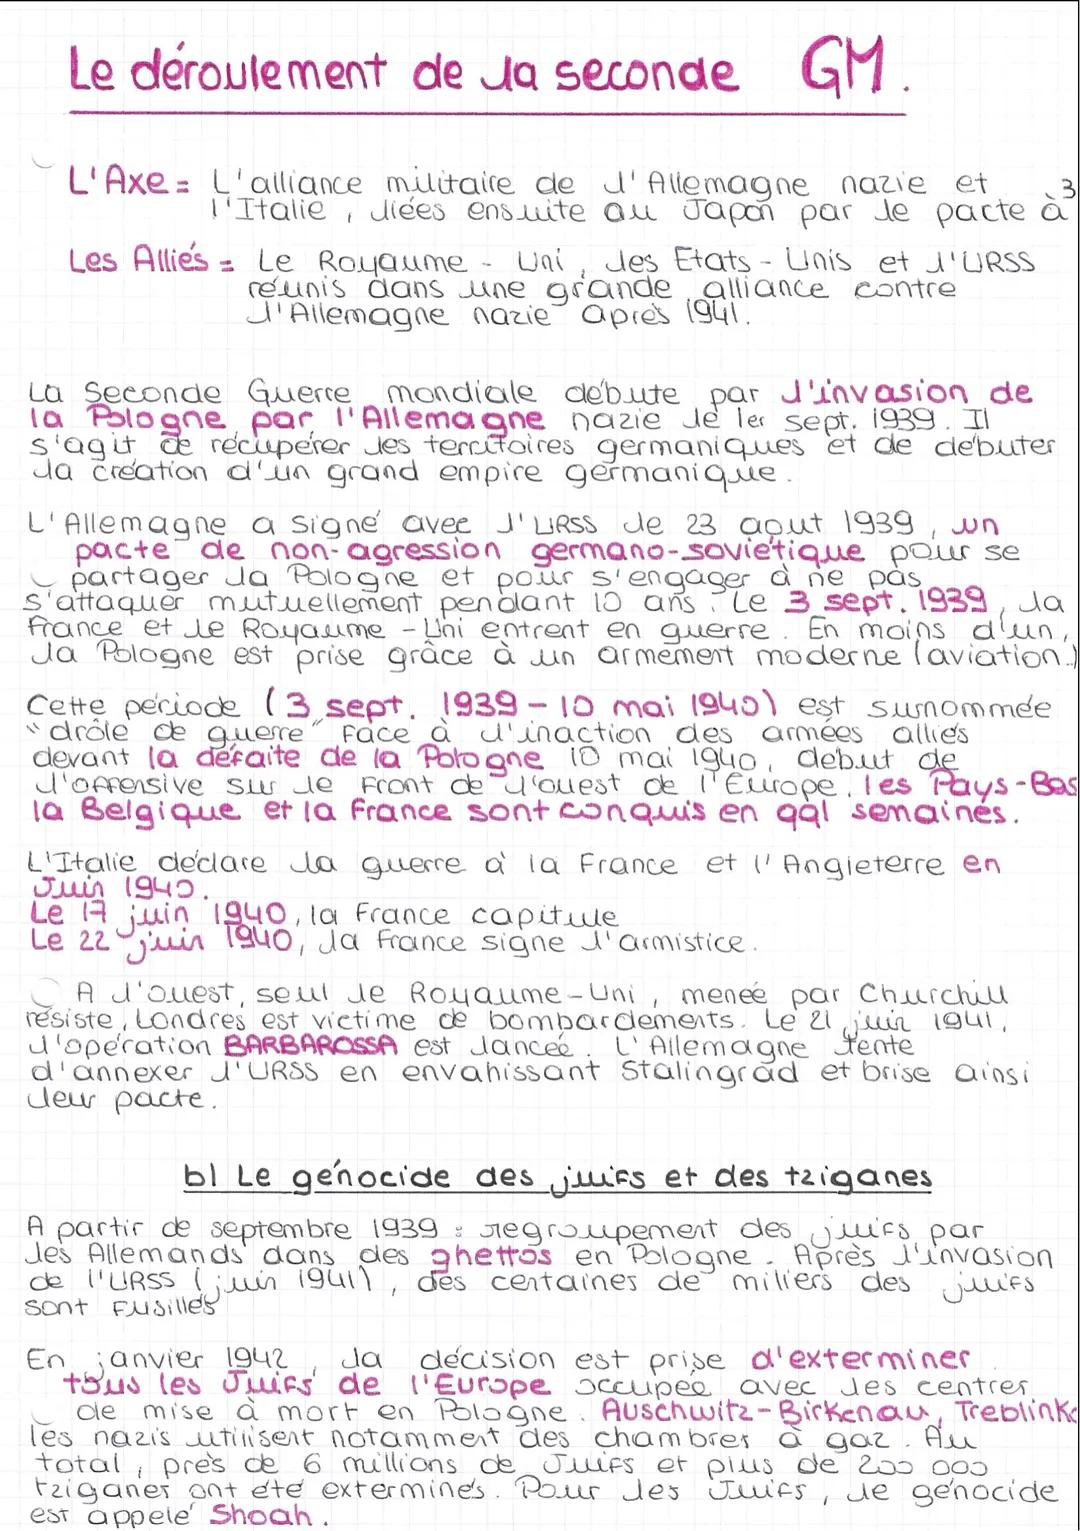 Le déroulement de la seconde GM.
L'Axe = L'alliance militaire de l'Allemagne nazie et
l'Italie, liées ensuite au Japon par le pacte à 3
Les Alliés = Le Royaume-Uni, les Etats-Unis et l'URSS
réunis dans une grande alliance contre
l'Allemagne nazie après 1941.
La Seconde Guerre mondiale débute par l'invasion de
la Pologne par l'Allemagne nazie le 1er sept. 1939. Il
s'agit de récupérer les territoires germaniques et de débuter
la création d'un grand empire germanique.
L'Allemagne a signé avec l'URSS le 23 aout 1939, un
pacte de non-agression germano-soviétique pour se
partager la Pologne et pour s'engager à ne pas
s'attaquer mutuellement pendant 10 ans. Le 3 sept. 1939, la
france et le Royaume-Uni entrent en guerre. En moins d'un,
la Pologne est prise grâce à un armement moderne (aviation.)
Cette période (3 sept. 1939 - 10 mai 1940) est surnommée
"drôle de guerre" face à l'inaction des armées alliés
devant la défaite de la Pologne 10 mai 1940, début de
l'offensive sur le front de l'ouest de l'Europe, les Pays-Bas
la Belgique et la france sont conquis en qql semaines.
L'Italie déclare la guerre à la France et l'Angleterre en
Juin 1940.
Le 17 juin 1940, la France capitule
Le 22 juin 1940, la france signe l'armistice.
A l'ouest, seul le Royaume-Uni, menée par Churchill
résiste, Londres est victime de bombardements. Le 21 juin 1941,
l'opération BARBAROSSA est lancée. L'Allemagne tente
d'annexer l'URSS en envahissant Stalingrad et brise ainsi
leur pacte.
b) Le génocide des juifs et des tziganes
A partir de septembre 1939 : regroupement des juifs par
les Allemands dans des ghettos en Pologne. Après l'invasion
de l'URSS (juin 1941), des centaines de milliers des juifs
sont fusillés
En janvier 1942, la décision est prise d'exterminer
tous les Juifs de l'Europe occupée avec les centres
de mise à mort en Pologne. Auschwitz-Birkenau, Treblinka
les nazis utilisent notamment des chambres à gaz. Au
total, près de 6 millions de Juifs et plus de 200 000
tziganes ont été exterminés. Pour les Juifs, le génocide
est appelé Shoah.